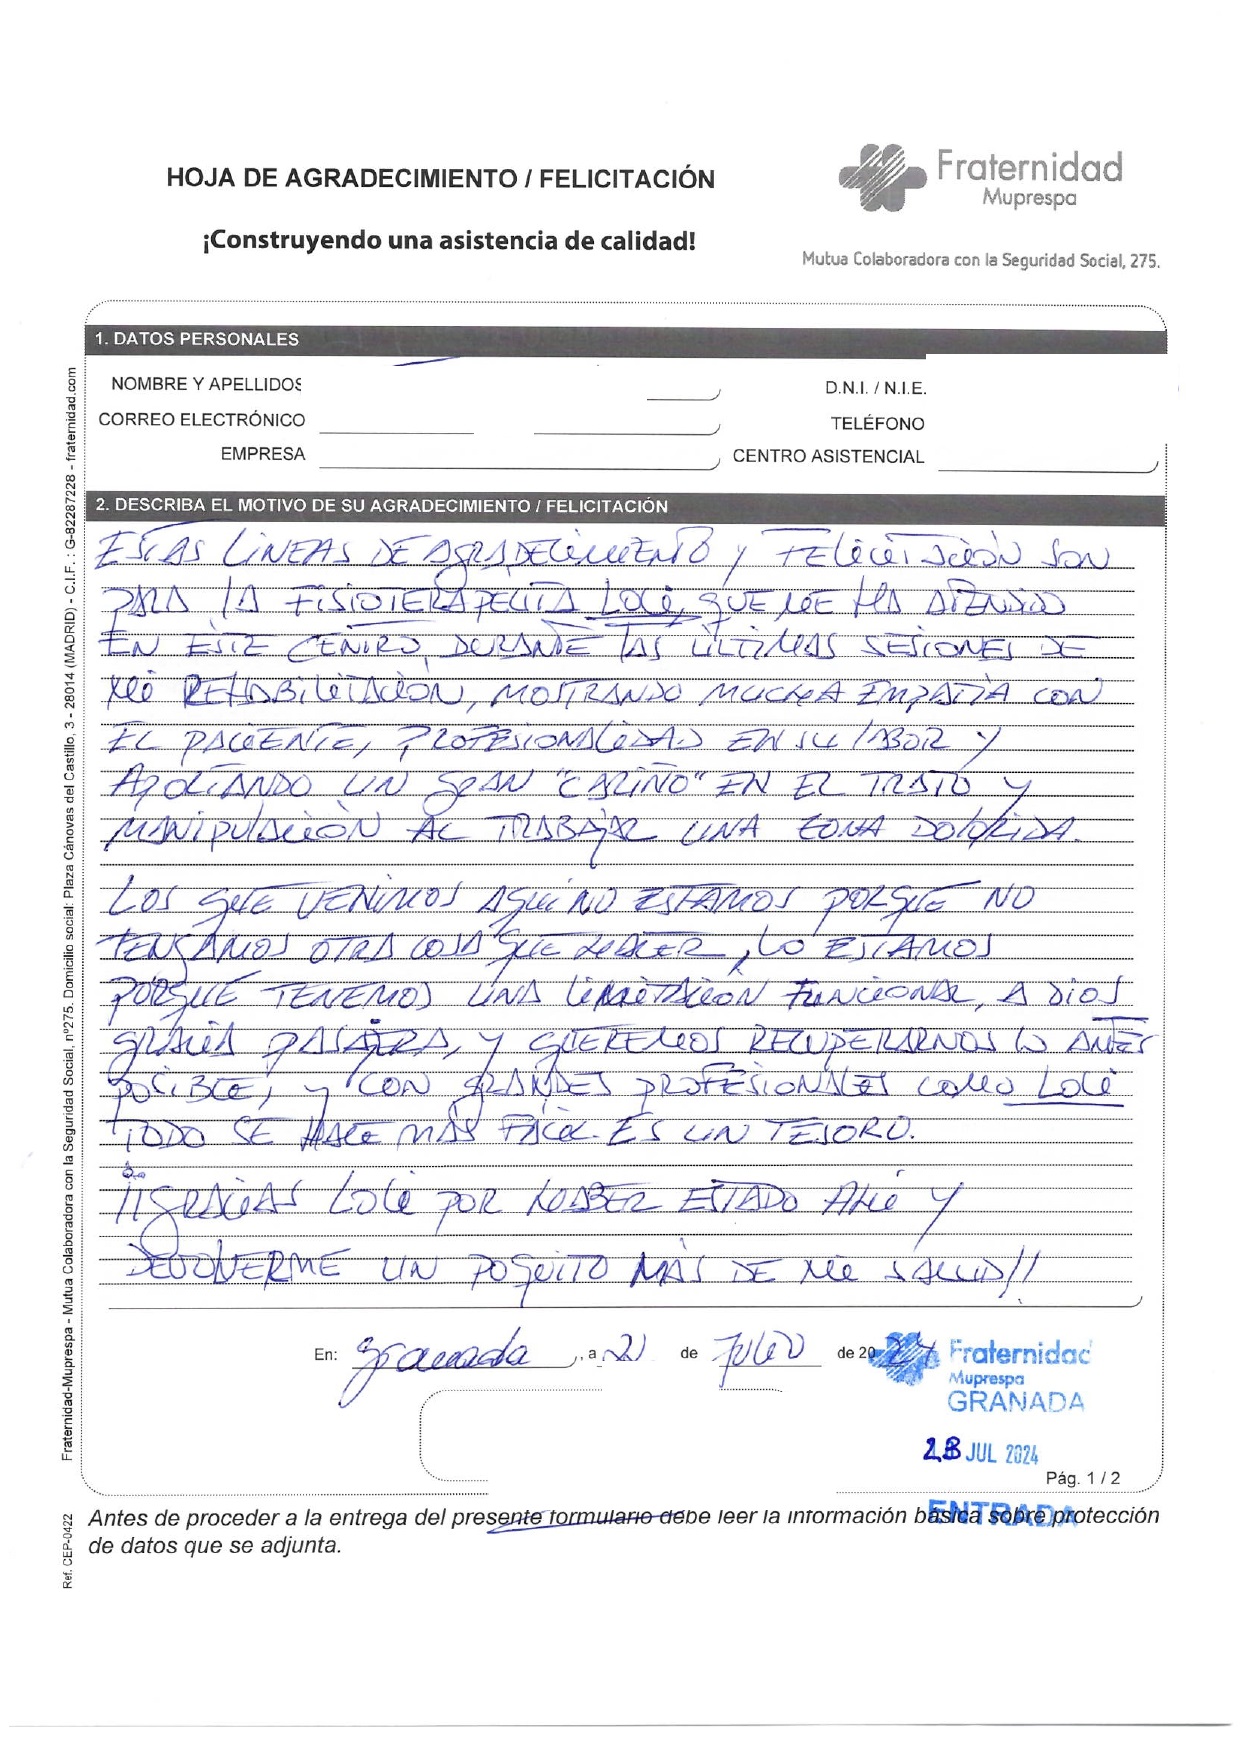 HOJA DE AGRADECIMIENTO / FELICITACIÓN
¡Construyendo una asistencia de calidad!
Fraternidad
Muprespa
Mutua Colaboradora con la Seguridad Social, 275.
1. DATOS PERSONALES
NOMBRE Y APELLIDOS
D.N.I. / N.I.E.
CORREO ELECTRÓNICO
TELÉFONO
EMPRESA
CENTRO ASISTENCIAL
2. DESCRIBA EL MOTIVO DE SU AGRADECIMIENTO / FELICITACIÓN
ESTAS LÍNEAS DE AGRADECIMIENTO Y FELICITACIÓN SON
PARA LA FISIOTERAPEUTA LOLI, QUE ME HA ATENDIDO
EN ESTE CENTRO, DURANTE LAS ÚLTIMAS SESIONES DE
MI REHABILITACIÓN, MOSTRANDO MUCHA EMPATÍA CON
EL PACIENTE, PROFESIONALIDAD EN SU LABOR Y
APORTANDO UN GRAN "CARIÑO" EN EL TRATO Y
MANIPULACIÓN AL TRABAJAR UNA ZONA DOLORIDA.
LOS QUE VENIMOS AQUÍ NO ESTAMOS PORQUE NO
TENGAMOS OTRA COSA QUE HACER, LO ESTAMOS
PORQUE TENEMOS UNA LIMITACIÓN FUNCIONAL, A DIOS
GRACIAS PASAJERA, Y QUEREMOS RECUPERARNOS LO ANTES
POSIBLE, Y CON GRANDES PROFESIONALES COMO LOLI
TODO SE HACE MÁS FÁCIL. ES UN TESORO.
¡¡GRACIAS LOLI POR HABER ESTADO AHÍ Y
DEVOLVERME UN POQUITO MÁS DE MI SALUD!!
En: Granada, a 21 de JULIO de 2024
Fraternidad
Muprespa
GRANADA
JUL 2024
ENTRADA
Pág. 1 / 2
Antes de proceder a la entrega del presente formulario debe leer la información básica sobre protección
de datos que se adjunta.
Fraternidad-Muprespa - Mutua Colaboradora con la Seguridad Social, nº275. Domicilio social: Plaza Cánovas del Castillo, 3 - 28014 (MADRID) - C.I.F. : G-82287228 - fraternidad.com
Ref. CEP-0422